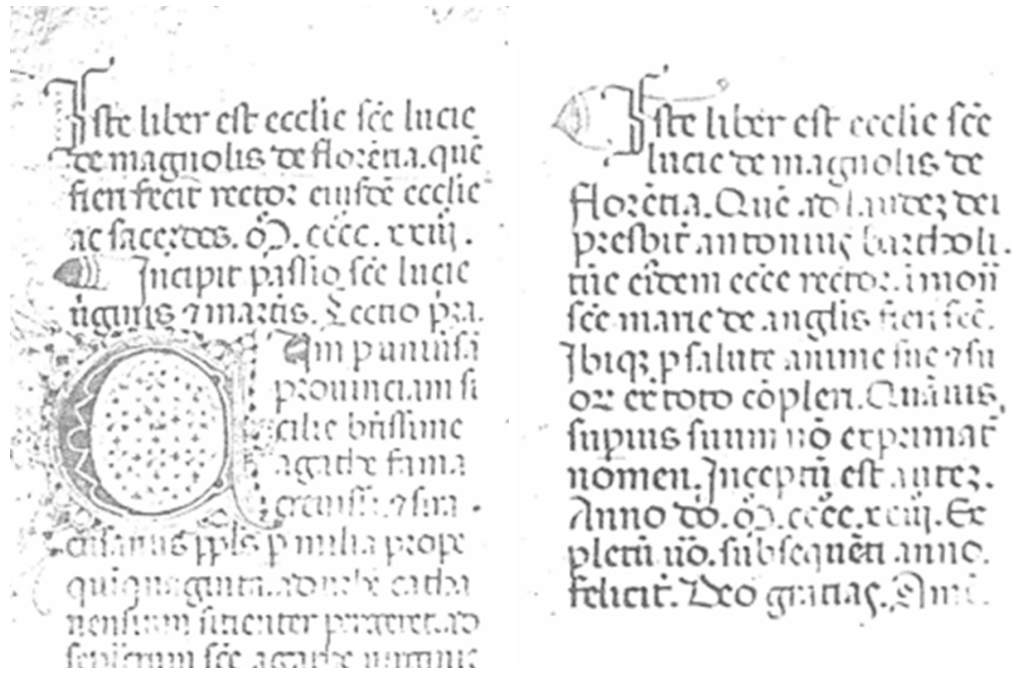 Iste liber est ecclie scē lucie
de magnolis de florētia. quē
fieri fecit rector eiusdē ecclie
ac sacerdos. Mͦ. cccc. xxiij.
Incipit passio scē lucie
uīginis ⁊ martiris. Lectio pīa.
Cum p uniuīsā
prouinciam si
cilie btīssime
agathe fama
crevisset ⁊ sira
cusanus ppls p milia prope
quīquaginta. ad urbē catha
nensium sitienter pergeret. ad
sepulcrum scē agathe uirginis
Iste liber est ecclie scē
lucie de magnolis de
florētia. Quē ad laudez dei
presbit̄ antonius bartholi.
tūc eīdem ecce rector. ī monī
scē marie de anglis fieri fēc.
Ibiqꝫ p salute anime sue ⁊ su
oꝝ ex toto cōpleri. Quāuis,
supius suum nō exprimat̄
nomen. Inceptū est autez.
Anno dō. Mͦ. cccc. xxiij. Ex
pletū uͦo. subsequēti anno.
feliciī. Deo gratias. Amē.